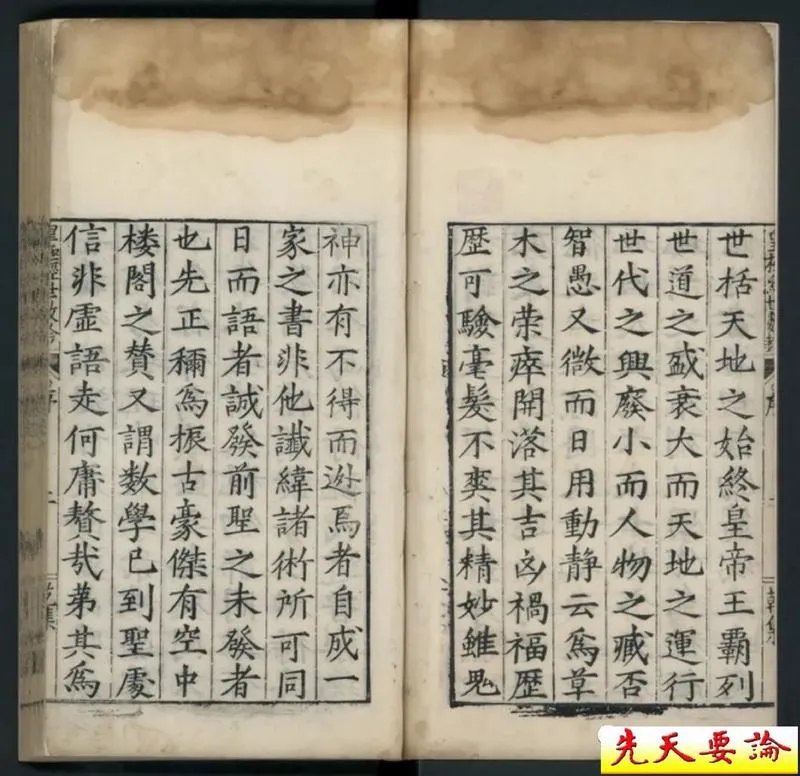 世括天地之始終皇帝王霸列
世道之盛衰大而天地之運行
世代之興廢小而人物之臧否
智愚又微而日用動静云為草
木之荣瘁開落其吉凶禍福歷
歷可驗毫髮不爽其精妙雖鬼
神亦有不得而逃焉者自成一
家之書非他讖緯諸術所可同
日而語者誠發前聖之未發者
也先正稱爲振古豪傑有空中
楼閣之賛又謂数學已到聖處
信非虛語走何庸贅哉苐其爲
先天要論